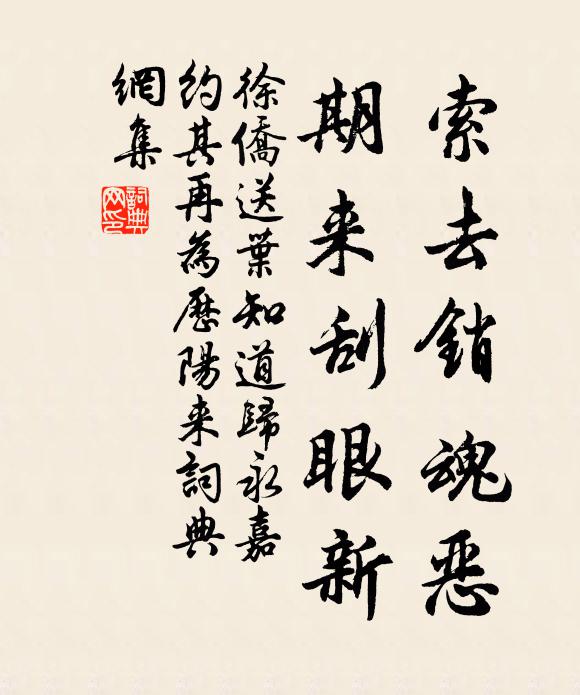 索去銷魂惡
期来刮眼新
徐僑送葉知道歸永嘉
約其再為歷陽来詞典
網集
詞典網印